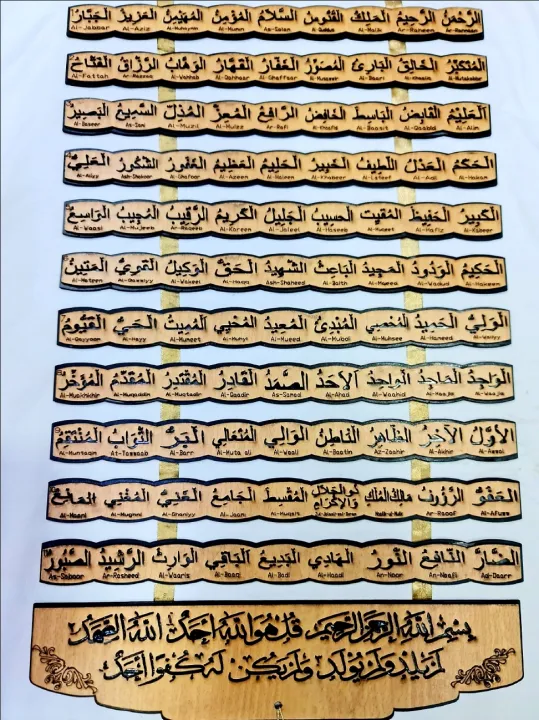 الرَّحْمٰنُ الرَّحِيمُ المَلِكُ القُدُّوسُ السَّلَامُ المُؤْمِنُ المُهَيْمِنُ العَزِيزُ الجَبَّارُ
Al-Jabbar Al-Aziz Al-Muhaymin Al-Mumin As-Salam Al-Quddus Al-Malik Ar-Raheem Ar-Rahmaan
المُتَكَبِّرُ الخَالِقُ البَارِئُ المُصَوِّرُ الغَفَّارُ القَهَّارُ الوَهَّابُ الرَّزَّاقُ الفَتَّاحُ
Al-Fattah Ar-Razzaq Al-Wahhab Al-Qahhaar Al-Ghaffaar Al-Musawwir Al-Baari Al-Khaaliq Al-Mutakabbir
العَلِيمُ القَابِضُ البَاسِطُ الخَافِضُ الرَّافِعُ المُعِزُّ المُذِلُّ السَّمِيعُ البَصِيرُ
Al-Baseer As-Sami Al-Muzil Al-Muizz Ar-Rafi Al-Khafid Al-Baasit Al-Qaabid Al-Alim
الحَكَمُ العَدْلُ اللَّطِيفُ الخَبِيرُ الحَلِيمُ العَظِيمُ الغَفُورُ الشَّكُورُ العَلِيُّ
Al-Aliyy Ash-Shakoor Al-Ghafoor Al-Azeem Al-Haleem Al-Khabeer Al-Lateef Al-Adl Al-Hakam
الكَبِيرُ الحَفِيظُ المُقِيتُ الحَسِيبُ الجَلِيلُ الكَرِيمُ الرَّقِيبُ المُجِيبُ الوَاسِعُ
Al-Waasi Al-Mujeeb Ar-Raqeeb Al-Kareem Al-Jaleel Al-Haseeb Al-Muqeet Al-Hafiz Al-Kabeer
الحَكِيمُ الوَدُودُ المَجِيدُ البَاعِثُ الشَّهِيدُ الحَقُّ الوَكِيلُ القَوِيُّ المَتِينُ
Al-Mateen Al-Qawwiyy Al-Wakeel Al-Haqq Ash-Shaheed Al-Baith Al-Majeed Al-Wadud Al-Hakeem
الوَلِيُّ الحَمِيدُ المُحْصِي المُبْدِئُ المُعِيدُ المُحْيِي المُمِيتُ الحَيُّ القَيُّومُ
Al-Qayyoom Al-Hayy Al-Mumeet Al-Muhyi Al-Mueed Al-Mubdi Al-Muhsee Al-Hameed Al-Waliyy
الوَاجِدُ المَاجِدُ الوَاحِدُ الأَحَدُ الصَّمَدُ القَادِرُ المُقْتَدِرُ المُقَدِّمُ المُؤَخِّرُ
Al-Muakhkhir Al-Muqaddim Al-Muqtadir Al-Qaadir As-Samad Al-Ahad Al-Waahid Al-Maajid Al-Waajid
الأَوَّلُ الآخِرُ الظَّاهِرُ البَاطِنُ الوَالِي المُتَعَالِي البَرُّ التَّوَّابُ المُنْتَقِمُ
Al-Muntaqim At-Tawwaab Al-Barr Al-Muta ali Al-Waali Al-Baatin Az-Zaahir Al-Akhir Al-Awwal
العَفُوُّ الرَّؤُوفُ مَالِكُ المُلْكِ ذُو الجَلَالِ وَالإِكْرَامِ المُقْسِطُ الجَامِعُ الغَنِيُّ المُغْنِي المَانِعُ
Al-Maani Al-Mughni Al-Ghaniyy Al-Jaami Al-Muqsit Malik-ul-Mulk Ar-Raoof Al-Afuww
الضَّارُّ النَّافِعُ النُّورُ الهَادِي البَدِيعُ البَاقِي الوَارِثُ الرَّشِيدُ الصَّبُورُ
As-Saboor Ar-Rasheed Al-Waaris Al-Baaqi Al-Badi Al-Haadi An-Noor An-Naafi Ad-Daarr
بِسْمِ اللهِ الرَّحْمٰنِ الرَّحِيمِ قُلْ هُوَ اللهُ أَحَدٌ اللهُ الصَّمَدُ
لَمْ يَلِدْ وَلَمْ يُولَدْ وَلَمْ يَكُنْ لَهُ كُفُوًا أَحَدٌ